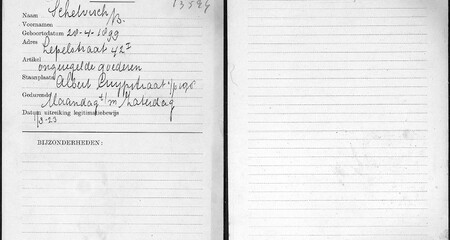 13594
Naam Schelvisch, B.
Voornamen
Geboortedatum 20-4-1899
Adres Lepelstraat 42 I
Artikel ongeregelde goederen
Staanplaats Albert Cuypstraat
Gedurende Maandag t/m Zaterdag
Datum uitreiking legitimatiebewijs
1/3-23
BIJZONDERHEDEN: